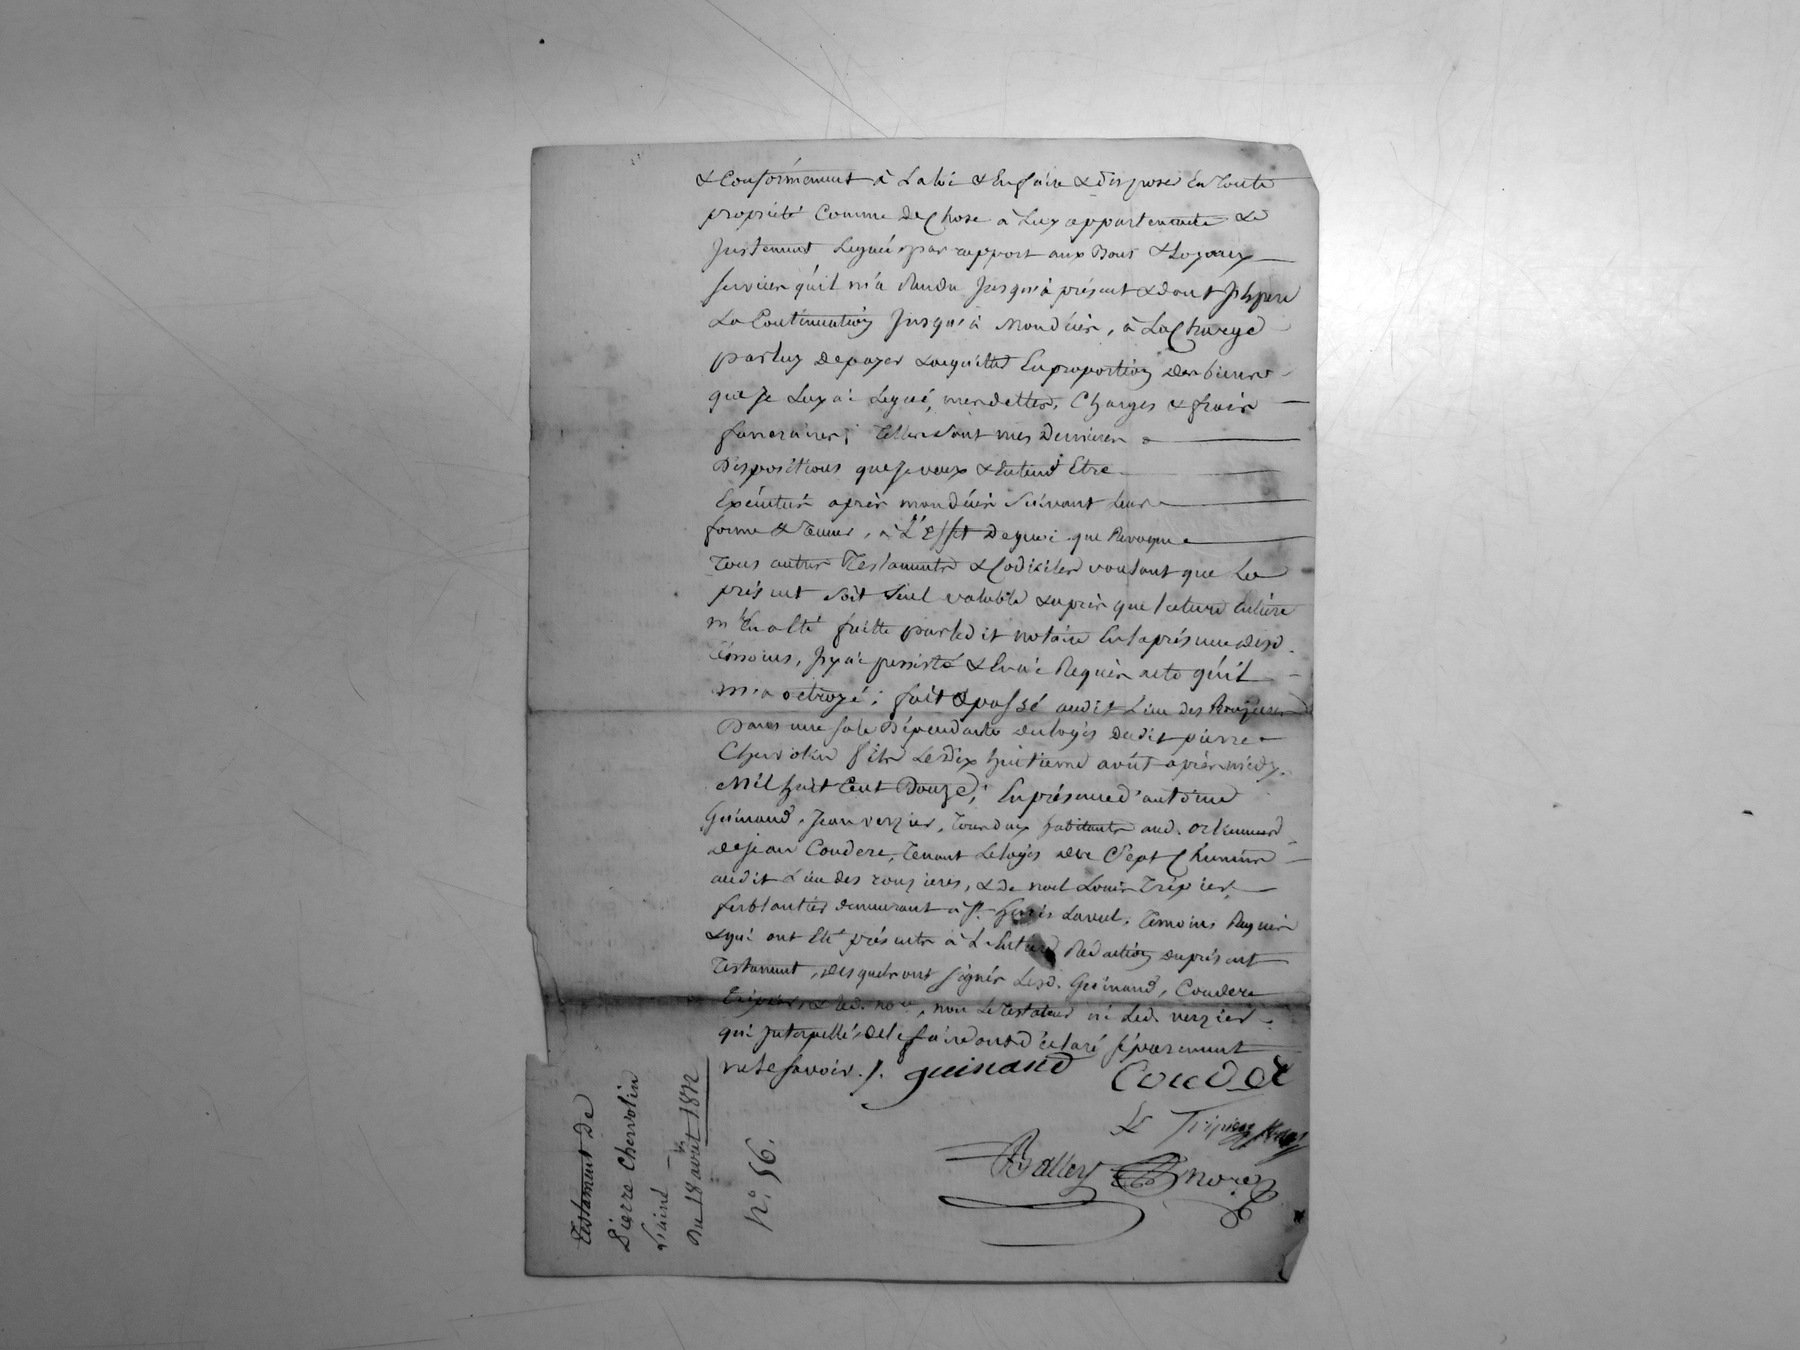 & Conformément à La loi & En faire & disposer én toute
propriété Comme de Chose à Luy appartenante &
Justement Leguée par rapport aux Bons & Loyaux
services qu'il m'a Randu Jusqu'à présent & dont J'Espere
La Continuation Jusqu'à mon décès, à La Charge
par luy de payer & acquitter En proportion des biens
que Je Luy ai Légué, mes dettes, Charges & frais
funeraires; telles sont mes Dernieres
Dispositions que Je veux & Entend Etre
Exécuteés après mon décès Suivant Leur
forme & teneur, à L'Effet de quoi que Revoque
tous autres Testaments & Codiciles voulant que Le
présent soit Seul valable & après que lecture Entiere
m'En a été faitte par led it notaire En la présence desd.
témoins, J'y ai persisté & En ai Requis acte qu'il
m'a octroyé; fait & passé audit Lieu des
Dans une sale Dépendante du logis dudit pierre
Chervolin fils Le dix huitieme août après midy.
Mil huit Cent Douze; En présence d'antoine
Guinand, Jean verzier, tous deux habitants aud.
de jean Couderc, tenant Le logis des Sept Chemins
audit Lieu des rouzieres, & de noel Louis Trépier
ferblantier demeurant à St. Genis Laval. témoins Requis
& qui ont Eté présents à La Lecture Rédaction du présent
Testament, desquels ont signés Lesd. Guinand, Couderc
Trépier, & led. nore, non Le testateur ni Led. verzier
qui Interpellés de le faire ont déclaré séparement
ne le savoir./. guinand Couderc
L Tripier
Balley
Testament de
Pierre Chervolin
L'ainé
Du 18 août 1812
No. 56.